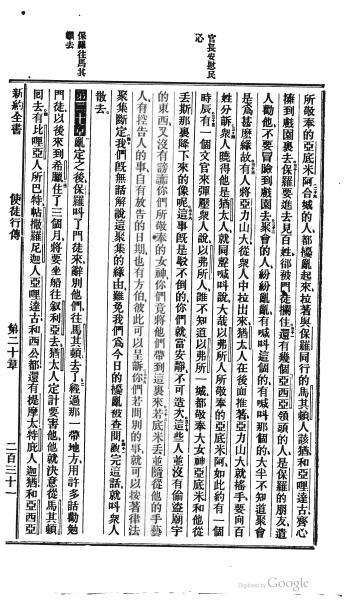 官長安慰民
心
保羅往馬其
頓去
所敬奉的亞底米阿合城的人、都擾亂起來、拉著與保羅同行的馬其頓人該猶和亞哩達古、齊心
擁到戲園裏去保羅要進去見百姓、卻被門徒攔住還有幾個亞西亞領頭的人、是保羅的朋友、遣
人勸他、不要冒險到戲園去聚會的人、紛紛亂亂、有喊叫這個的、有喊叫那個的、大半不知道聚會
是爲甚麼緣故有人將亞力山大從衆人中拉出來、猶太人在後面推著亞力山大就搖手、要向百
姓分訴衆人曉得他是猶太人、就同聲喊叫說、大哉以弗所人所敬奉的亞底米阿、如此約有一個
時辰有一個文官來彈壓衆人說、以弗所人、誰不知道以弗所一城、都敬奉大女神亞底米和他從
丟斯那裏降下來的像呢這事旣是駁不倒的、你們就當安靜、不可造次這些人並沒有偷盜廟宇
的東西、又沒有謗讟你們所敬奉的女神、你們竟將他們帶到這裏來若底米丟並隨從他的手藝
人、有控告人的事、自有放告的日期、也有方伯、彼此可以呈訴你們若問別的事、就可以按著律法
聚集斷定我們旣無話解說這聚集的緣由、難免我們爲今日的擾亂被查問說完這話、就叫衆人
散去。
第二十章亂定之後、保羅叫了門徒來、辭別他們、往馬其頓去了經過那一帶地方、用許多話勸勉
門徒、以後來到希臘住了三個月、將要坐船往叙利亞去、猶太人定計要害他、他就決意從馬其頓
囘去有比哩亞人所巴特、帖撒羅尼迦人亞哩達古和西公都、還有提摩太、特庇人迦猶、和亞西亞
新約全書　使徒行傳　第二十章　二百三十一
Digitized by Google